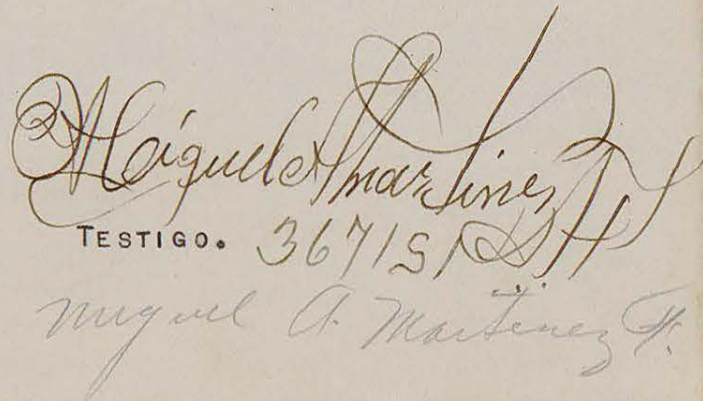 Miguel A Martinez H
TESTIGO. 367151
Miguel A. Martinez H.